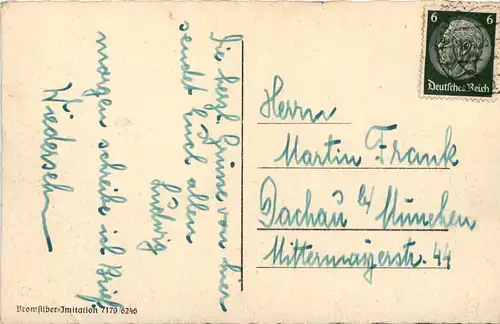 Die herzl. Grüsse von hier
sendet Euch allen
Ludwig
morgen schreibe ich Brief.
Wiedersehn
Bromsilber-Imitation 7179/6246
6 6
Deutsches Reich
Herrn
Martin Frank
Dachau b/ München
Mittermayerstr. 44